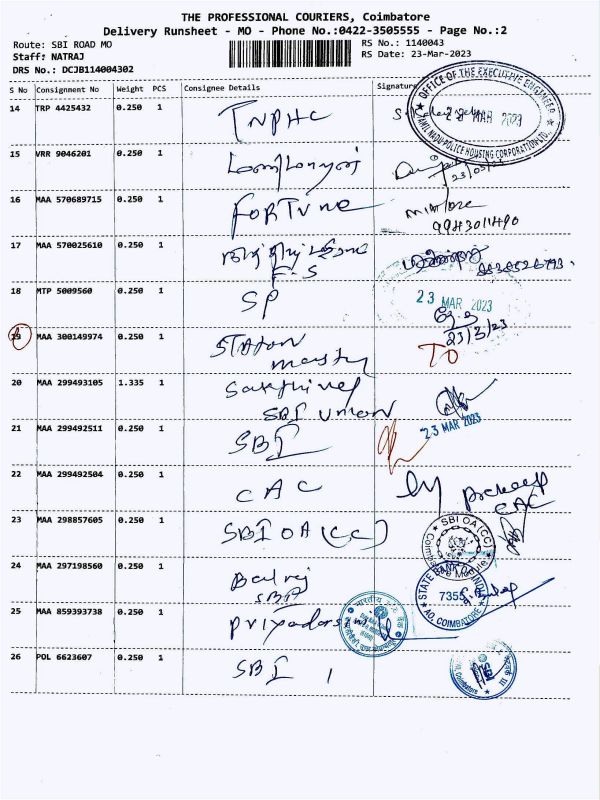 THE PROFESSIONAL COURIERS, Coimbatore
Delivery Runsheet - MO - Phone No.:0422-3505555 - Page No.:2
Route: SBI ROAD MO
RS No.: 1140043
Staff: NATRAJ
RS Date: 23-Mar-2023
DRS No.: DCJB114004302
S No Consignment No Weight PCS Consignee Details Signature
14 TRP 4425432 0.250 1 TNPHC
OFFICE OF THE EXECUTIVE ENGINEER
MAR 2023
TAMIL NADU POLICE HOUSING CORPORATION LTD.,
15 VRR 9046201 0.250 1
16 MAA 570689715 0.250 1 FORTUNE
9943011490
17 MAA 570025610 0.250 1
F.S
18 MTP 5009560 0.250 1 SP
23 MAR 2023
23/3/23
19 MAA 300149974 0.250 1 STATION
TO
20 MAA 299493105 1.335 1 Sakthivel
SBI UNION
23 MAR 2023
21 MAA 299492511 0.250 1 SBI
22 MAA 299492504 0.250 1 CAC
CAC
23 MAA 298857605 0.250 1 SBI OA (CC)
SBI OA(CC)
Coimbatore Module
24 MAA 297198560 0.250 1 Balraj
SBI
STATE BANK OF INDIA
7355
AO, COIMBATORE
25 MAA 859393738 0.250 1
26 POL 6623607 0.250 1 SBI
SBI